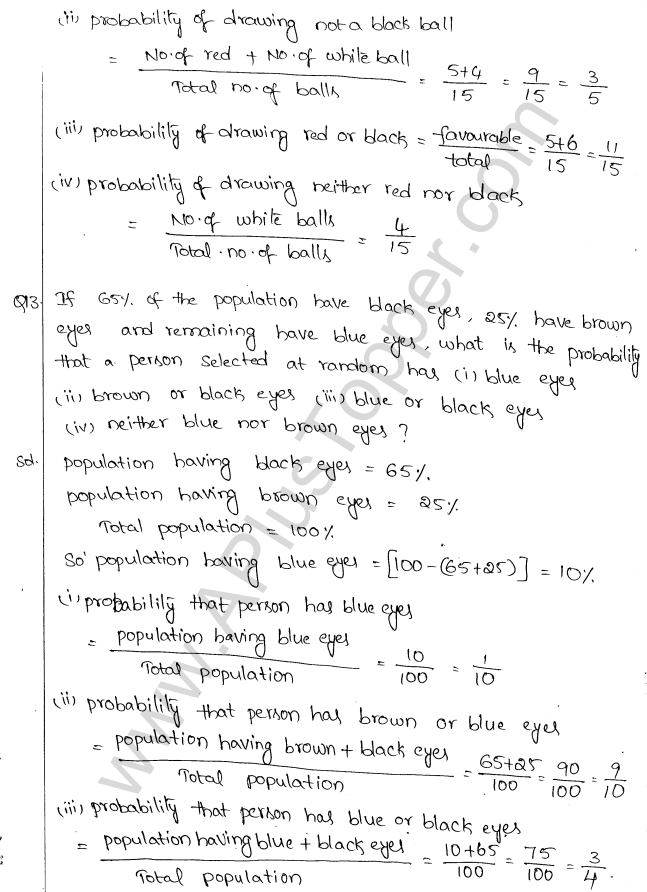 (ii) probability of drawing not a black ball
= No. of red + No. of white ball / Total no. of balls = 5+4/15 = 9/15 = 3/5
(iii) probability of drawing red or black = favourable/total = 5+6/15 = 11/15
(iv) probability of drawing neither red nor black
= No. of white balls / Total. no. of balls = 4/15
Q13. If 65% of the population have black eyes, 25% have brown
eyes and remaining have blue eyes, what is the probability
that a person selected at random has (i) blue eyes
(ii) brown or black eyes (iii) blue or black eyes
(iv) neither blue nor brown eyes ?
Sol. population having black eyes = 65%.
population having brown eyes = 25%
Total population = 100%
So population having blue eyes = [100-(65+25)] = 10%
(i) probability that person has blue eyes
= population having blue eyes / Total population = 10/100 = 1/10
(ii) probability that person has brown or blue eyes
= population having brown + black eyes / Total population = 65+25/100 = 90/100 = 9/10
(iii) probability that person has blue or black eyes
= population having blue + black eyes / Total population = 10+65/100 = 75/100 = 3/4.
www.APlusTopper.com